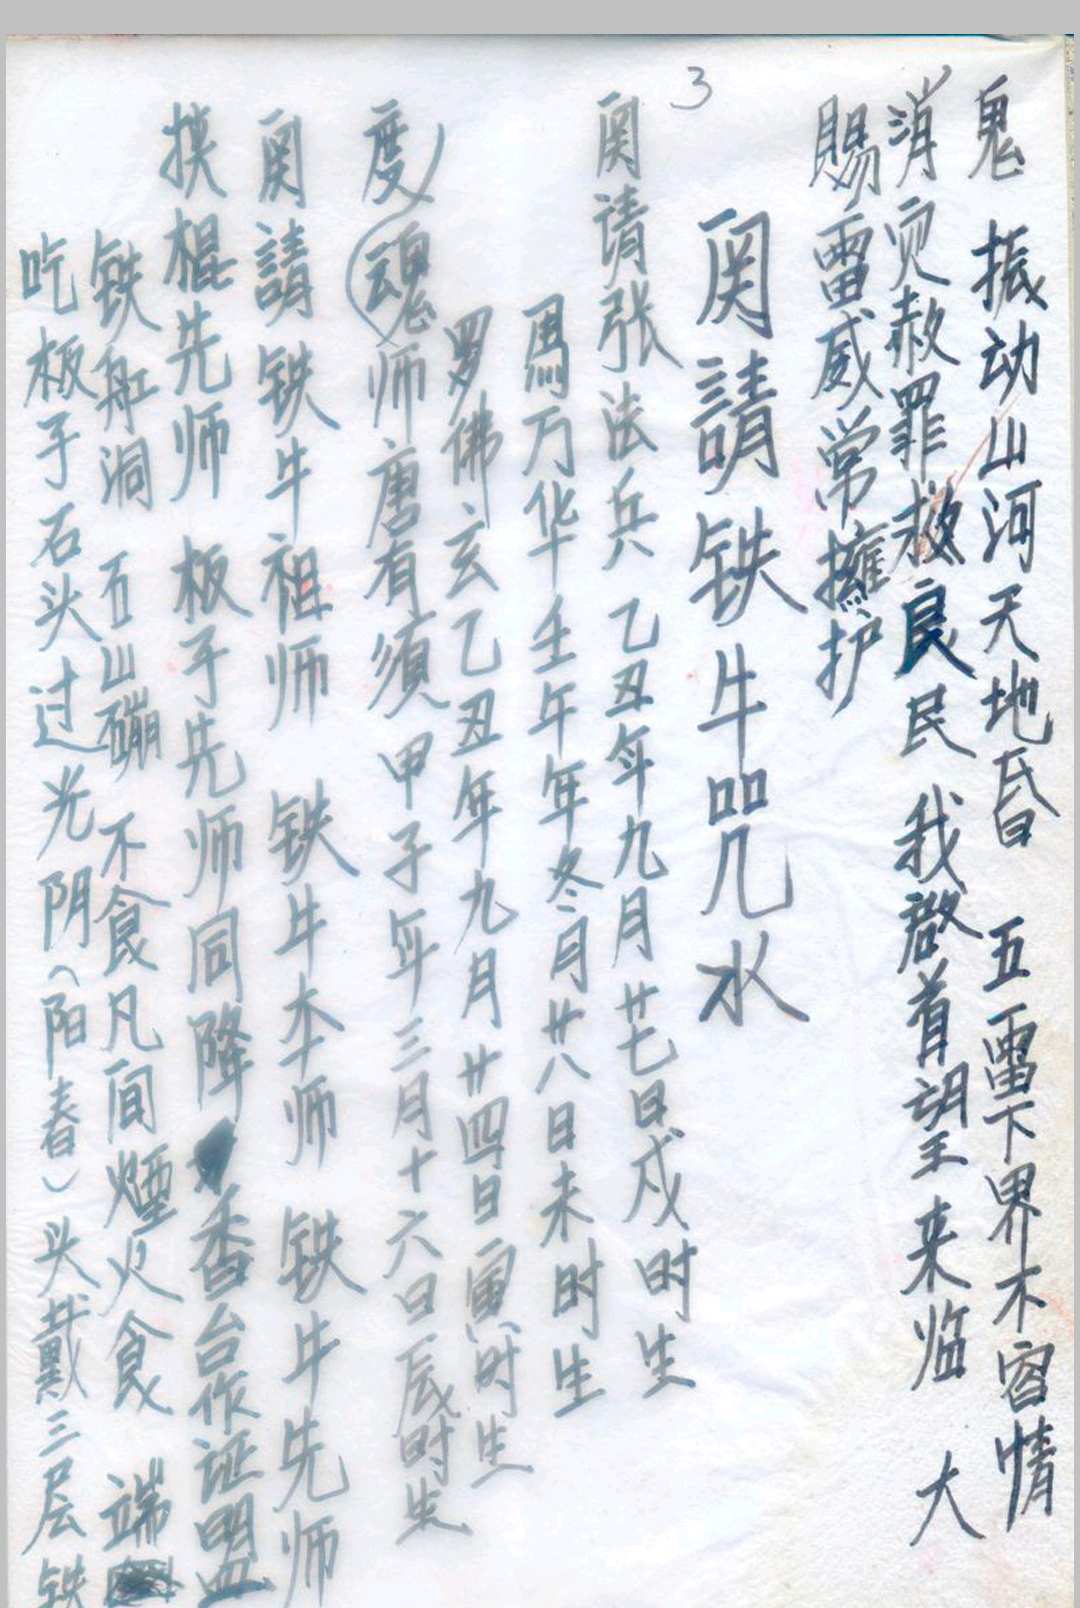 鬼 振动山河天地昏 五雷下界不容情
消灾赦罪救良民 我啟首望来临 大
賜雷威常擁护
3
関請铁牛咒水
関请张法兵 乙丑年九月廿七日戍时生
馬万华壬午年冬月廿八日未时生
罗佛玄乙丑年九月廿四日寅时生
度(魂)师唐有須 甲子年三月十六日辰时生
関請铁牛祖师 铁牛本师 铁牛先师
摸棍先师 板子先师同降香台作证盟
铁船洞 五山磞 不食凡间煙火食 端
吃板子石头过光阴(阳春)头戴三层铁